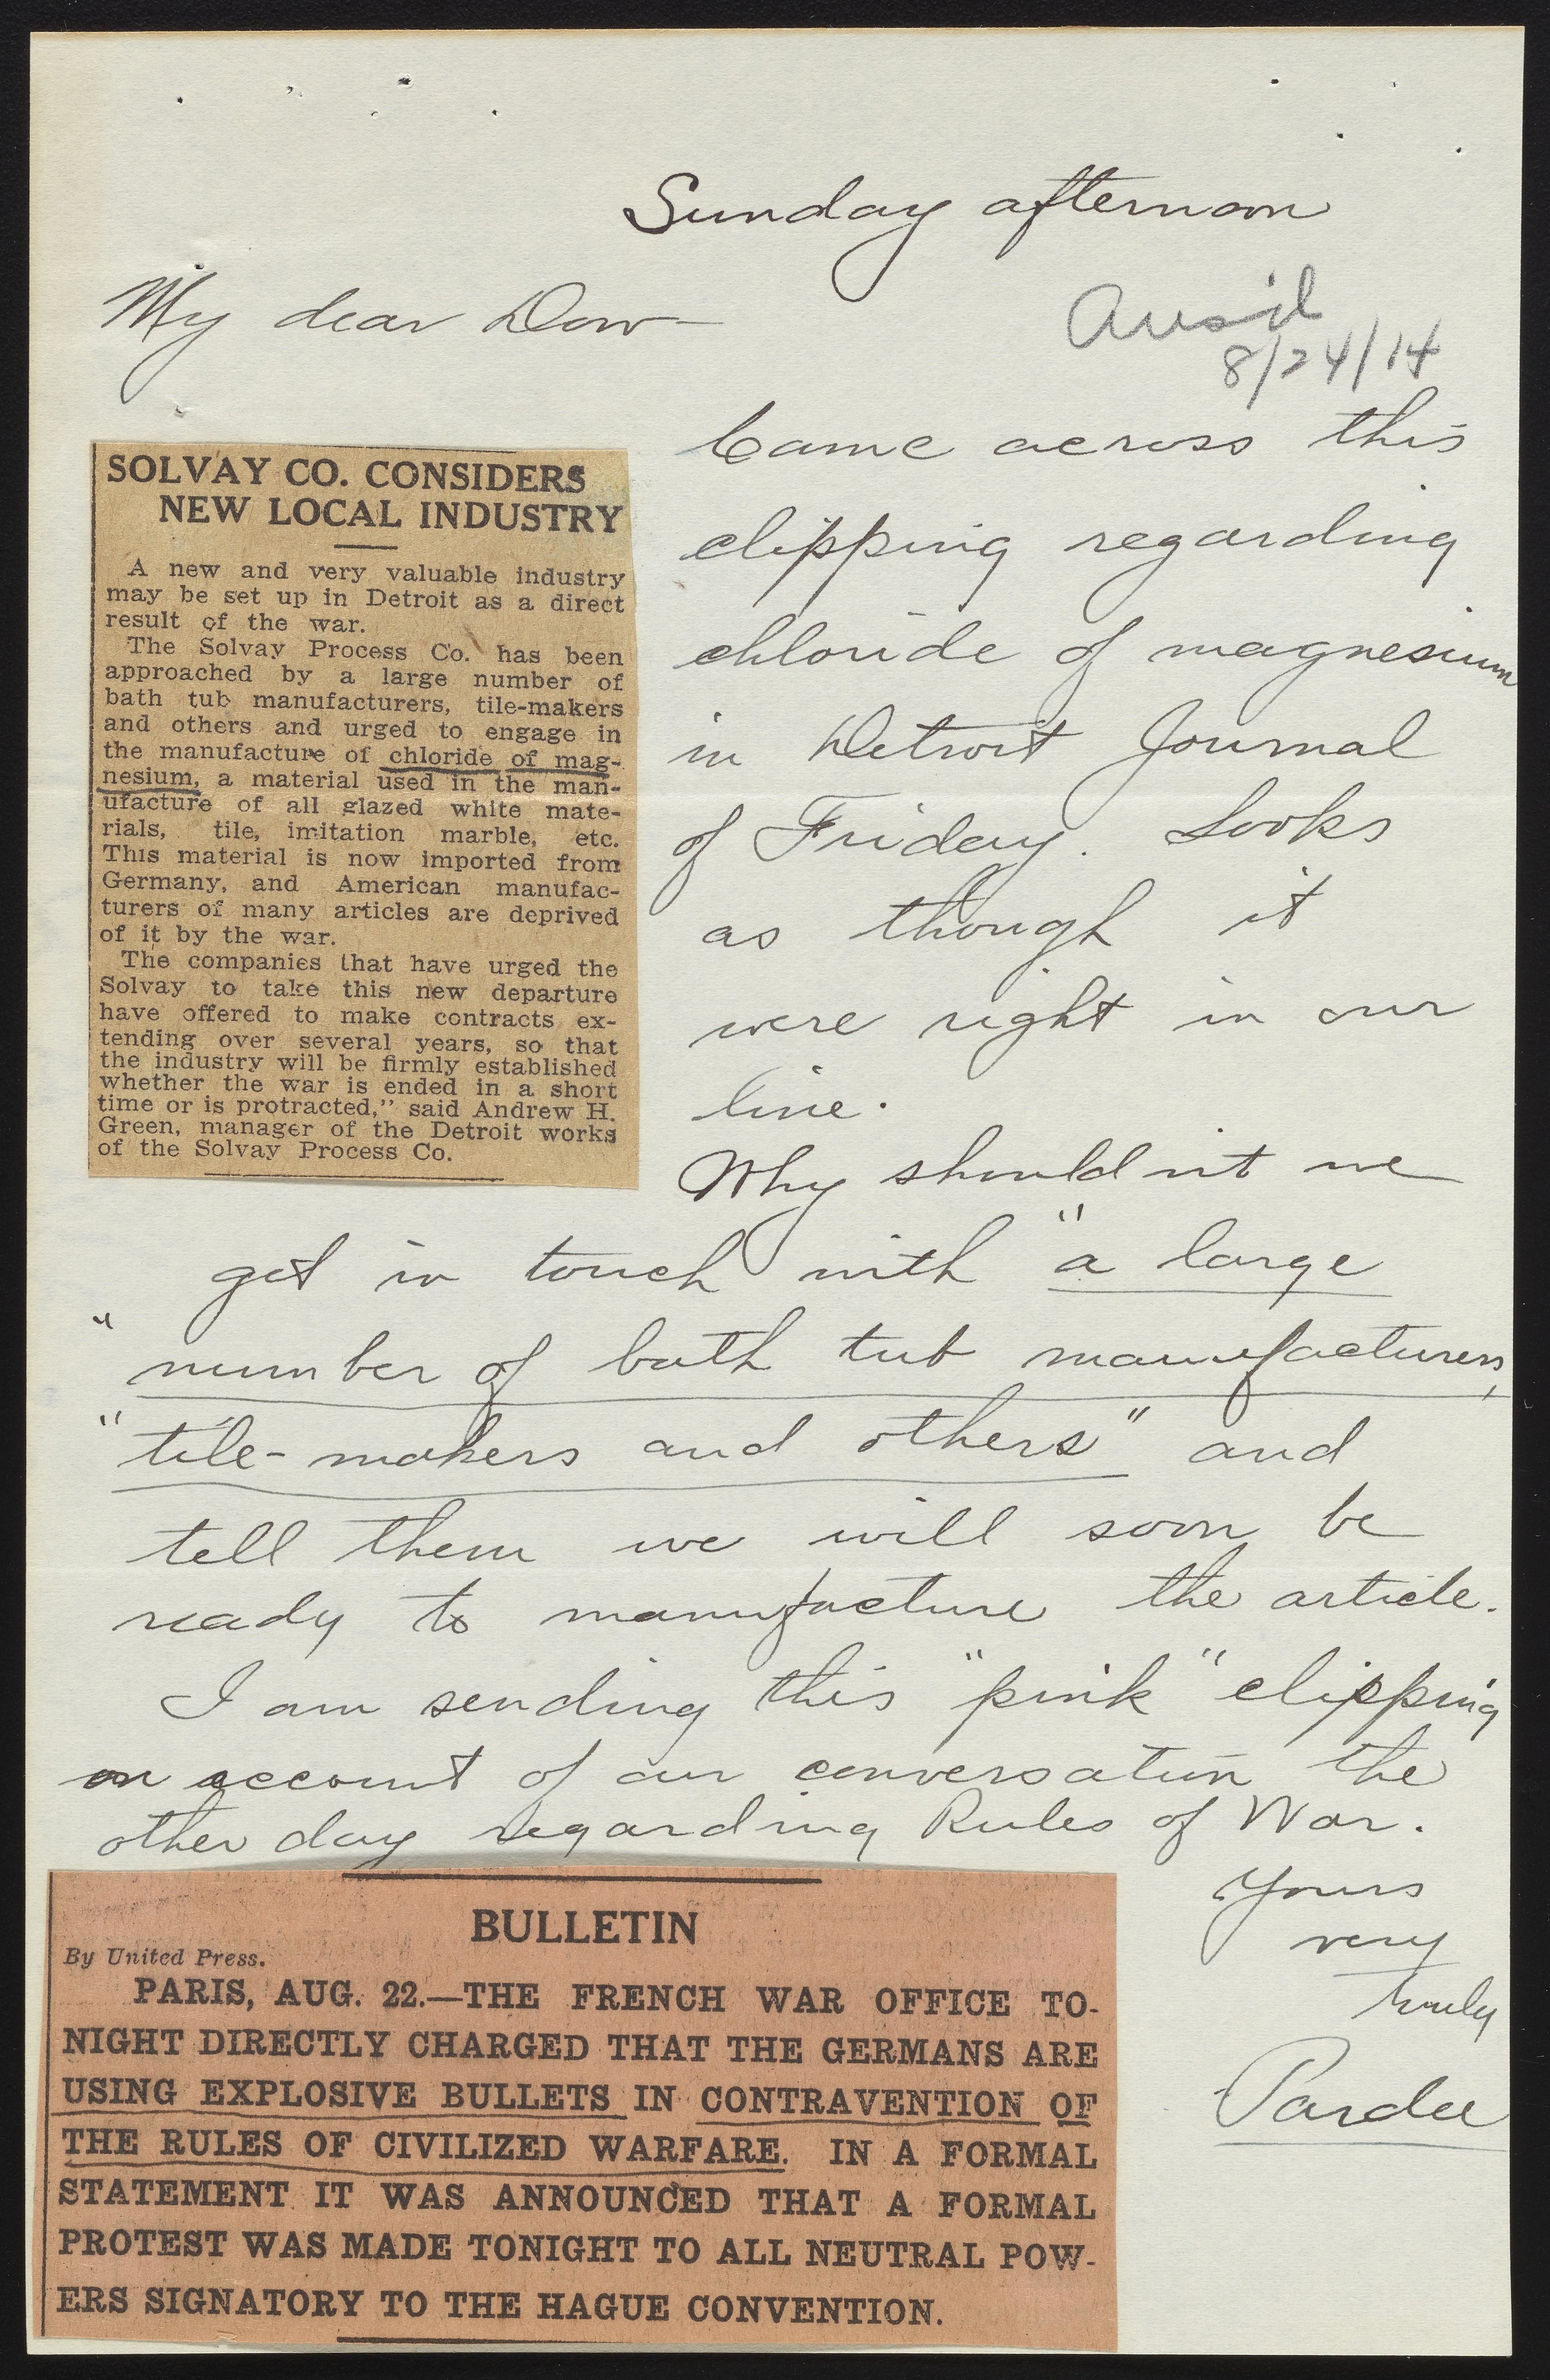 Sunday afternoon
My dear Dow—
8/24/14
Came across this
clipping regarding
chloride of magnesium
in Detroit Journal
of Friday. Looks
as though it
were right in our
line.
SOLVAY CO. CONSIDERS
NEW LOCAL INDUSTRY
A new and very valuable industry
may be set up in Detroit as a direct
result of the war.
The Solvay Process Co. has been
approached by a large number of
bath tub manufacturers, tile-makers
and others and urged to engage in
the manufacture of chloride of mag-
nesium, a material used in the man-
ufacture of all glazed white mate-
rials, tile, imitation marble, etc.
This material is now imported from
Germany, and American manufac-
turers of many articles are deprived
of it by the war.
The companies that have urged the
Solvay to take this new departure
have offered to make contracts ex-
tending over several years, so that
the industry will be firmly established
whether the war is ended in a short
time or is protracted," said Andrew H.
Green, manager of the Detroit works
of the Solvay Process Co.
Why shouldn't we
get in touch with "a large
"number of bath tub manufacturers,
"tile-makers and others" and
tell them we will soon be
ready to manufacture the article.
I am sending this "pink" clipping
on account of our conversation the
other day regarding Rules of War.
Yours
very
truly
Pardee
BULLETIN
By United Press.
PARIS, AUG. 22.—THE FRENCH WAR OFFICE TO-
NIGHT DIRECTLY CHARGED THAT THE GERMANS ARE
USING EXPLOSIVE BULLETS IN CONTRAVENTION OF
THE RULES OF CIVILIZED WARFARE. IN A FORMAL
STATEMENT IT WAS ANNOUNCED THAT A FORMAL
PROTEST WAS MADE TONIGHT TO ALL NEUTRAL POW-
ERS SIGNATORY TO THE HAGUE CONVENTION.